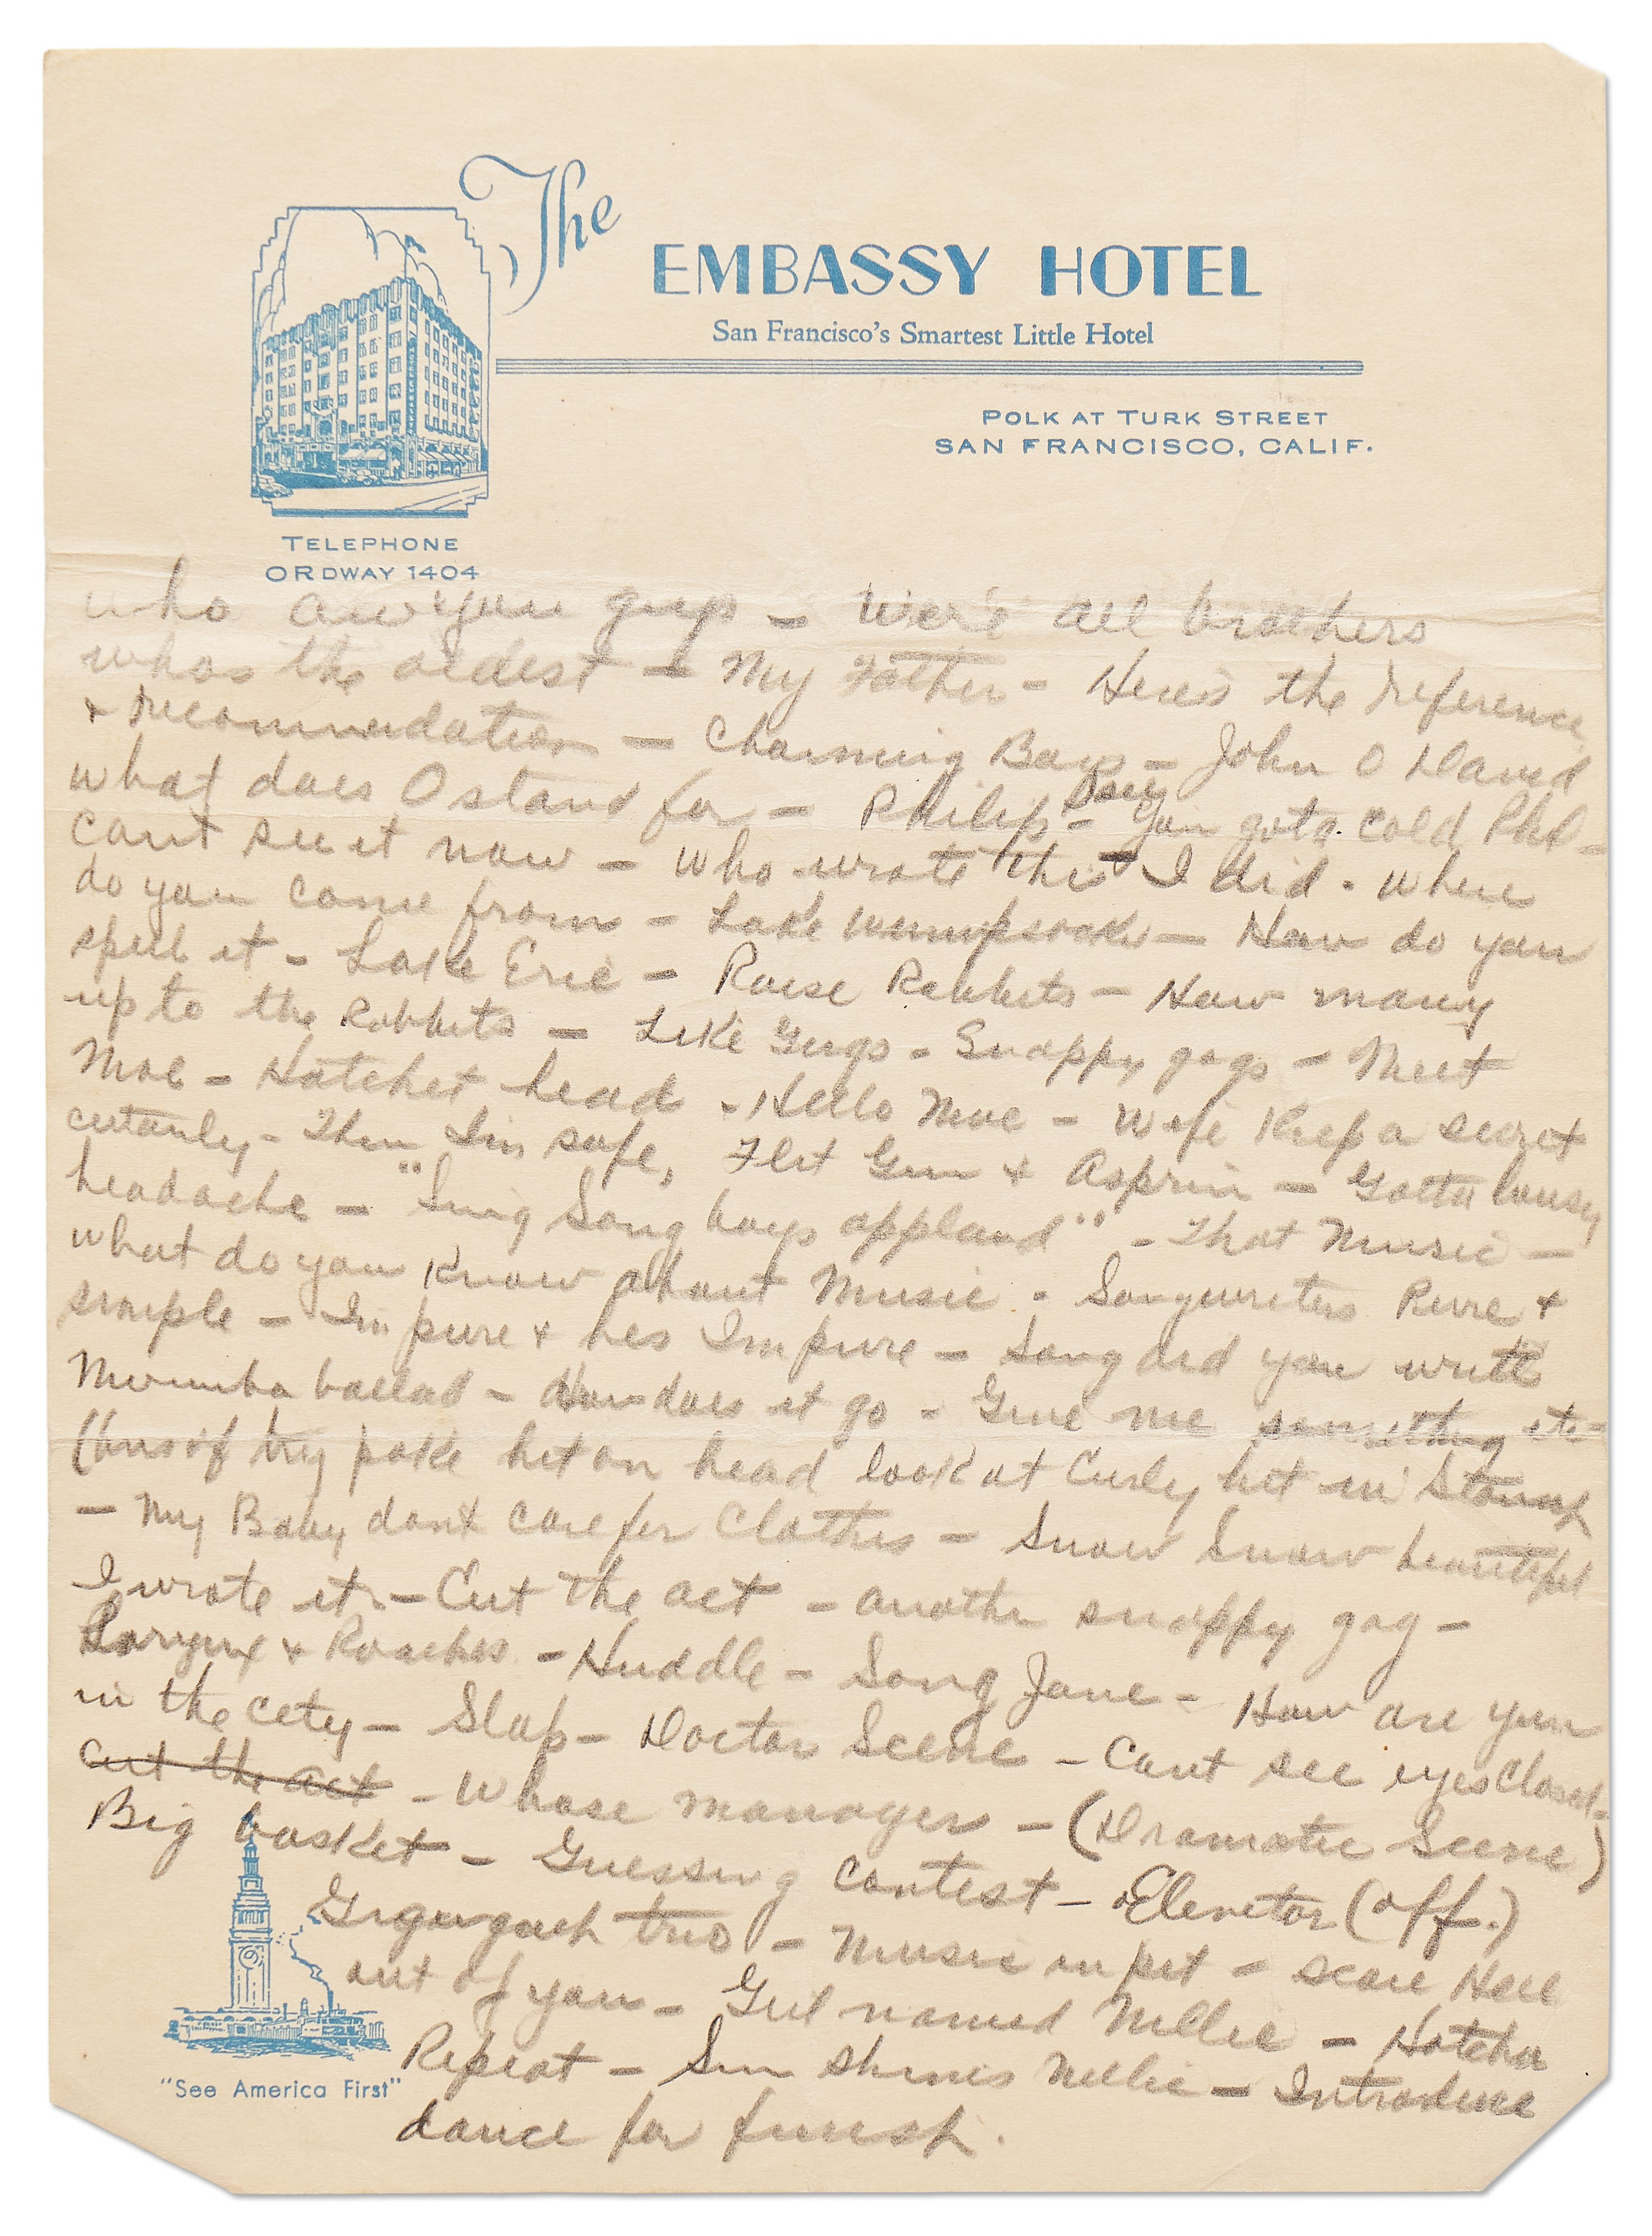 The
EMBASSY HOTEL
San Francisco's Smartest Little Hotel
POLK AT TURK STREET
SAN FRANCISCO, CALIF.
TELEPHONE
ORDWAY 1404
who are you guys - We're all brothers
whos the oldest - My Father - Heres the reference
& recommendation - Charming Boys - John O David
what does O stand for - Philip - You gota cold Phil -
cant see it now - who wrote this I did - where
do you come from - Lake - How do you
spell it - Lake Erie - Raise Rabbits - How many
up to the Rabbits - Like Gugs - Snappy gags - Meet
Moe - Hatchet head - Hello Moe - Wife Keep a secret
certanly - Then Im safe, Flit Gun & Asprin - Gotta lousy
headache - "Sing Song boys appland" - That Music -
what do you know about Music - Songwriters Pure &
simple - Im pure & hes Impure - Song did you write
Mumba ballad - How does it go - Give me something etc -
(bus of poke hit on head look at Curly hit in Stomach
- My Baby dont care for Clothes - Snow Snow beautiful
I wrote it - Cut the act - another snappy gag -
Larynx & Roaches - Huddle - Song Jane - How are you
in the city - Slap - Doctor Scene - Cant see eyes closed -
cut the act - Whose manager - (Dramatic Scene)
Big basket - Guessing contest - Elevator (off.)
trio - Music in pit - scare Hell
out of you - Girl named Nellie - Hotcha
Repeat - Sun shines Nellie - Introduce
"See America First"
dance for finish.